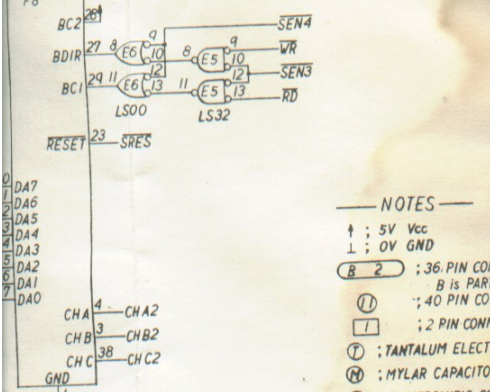 BC2 28
SEN4
9
BDIR 27 8 E6 10 8 E5 9 WR
10
12 12 SEN3
BC1 29 11 E6 13 11 E5 13 RD
LS00 LS32
RESET 23 SRES
DA7
DA6
DA5
DA4
DA3
DA2
DA1
DA0
CHA 4 CHA2
CHB 3 CHB2
CHC 38 CHC2
GND
NOTES
; 5V Vcc
; 0V GND
B 2 ; 36. PIN CO
B is PAR
11 ; 40 PIN CO
1 ; 2 PIN CON
T ; TANTALUM ELECT
M ; MYLAR CAPACITO